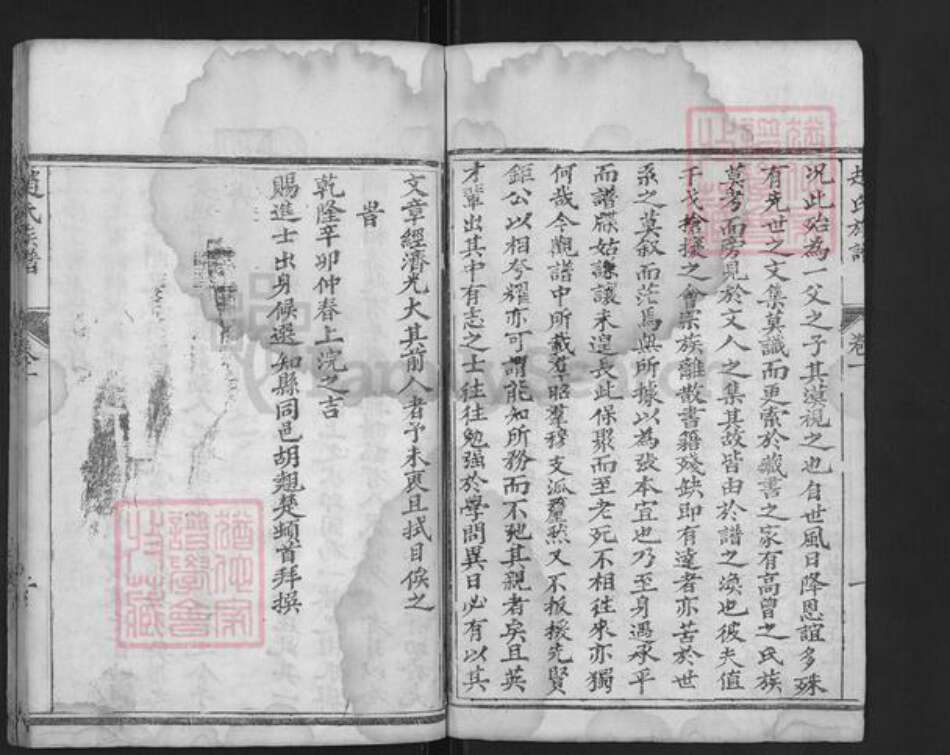 況此殆為一父之子其漠視之也自世風日降恩誼多殊
有先世之文集莫識而更索於藏書之家有高曾之氏族
莫考而旁見於文人之集其故皆由於譜之渙也彼夫值
干戈搶攘之會宗族離散書籍殘缺即有達者亦苦於世
系之莫叙而茫焉無所據以為張本宜也乃至身遇承平
而譜牒姑謙讓未遑長此保聚而至老死不相往來亦獨
何哉今觀譜中所載若昭羣穆支派羣然又不扳援先賢
鉅公以相夸耀亦可謂能知所務而不兝其親者矣且英
才輩出其中有志之士往往勉強於學問異日必有以其
文章經濟光大其前人者予未更且拭目俟之
旹
乾隆辛卯仲春上浣之吉
賜進士出身候選知縣同邑胡翹楚頓首拜撰
趙氏族譜
卷一
一
猶他家譜學會收藏
FamilySearch